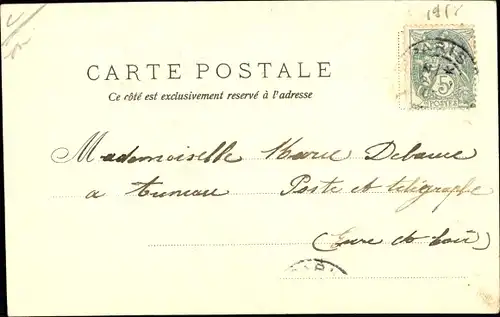 CARTE POSTALE
Ce côté est exclusivement reservé à l'adresse
PARIS
5c
POSTES
Mademoiselle Marie
à Poste et télégraphe
(Eure et Loir)